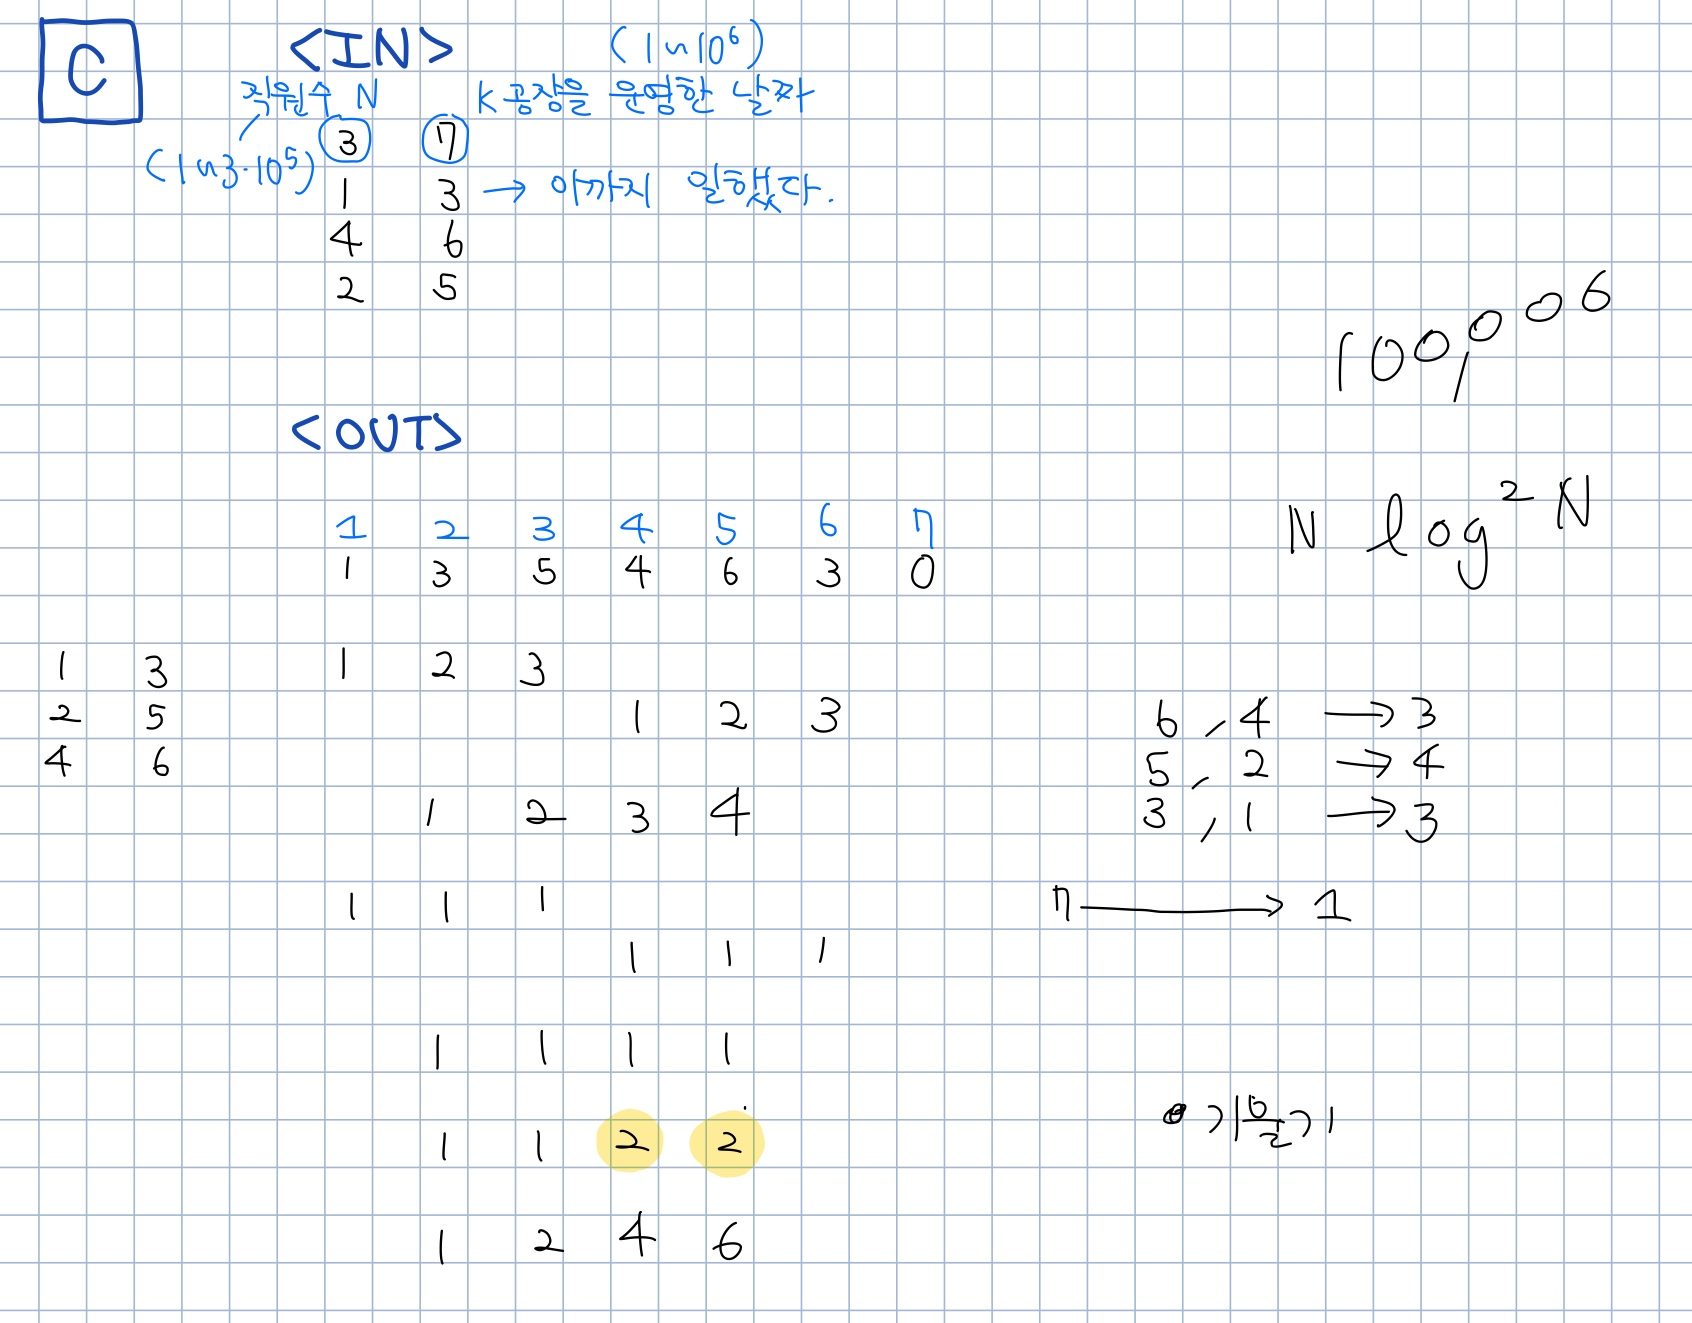 C
<IN> (1~10⁶)
직원수 N K 공장을 운영한 날짜
(1~3·10⁵) 3 7
1 3 → 이까지 일했다.
4 6
2 5
100,006
<OUT>
N log² N
1 2 3 4 5 6 7
1 3 5 4 6 3 0
1 3 1 2 3
2 5 1 2 3 6, 4 → 3
4 6 5, 2 → 4
1 2 3 4 3, 1 → 3
1 1 1 7 → 1
1 1 1
1 1 1 1
1 1 2 2
1 2 4 6